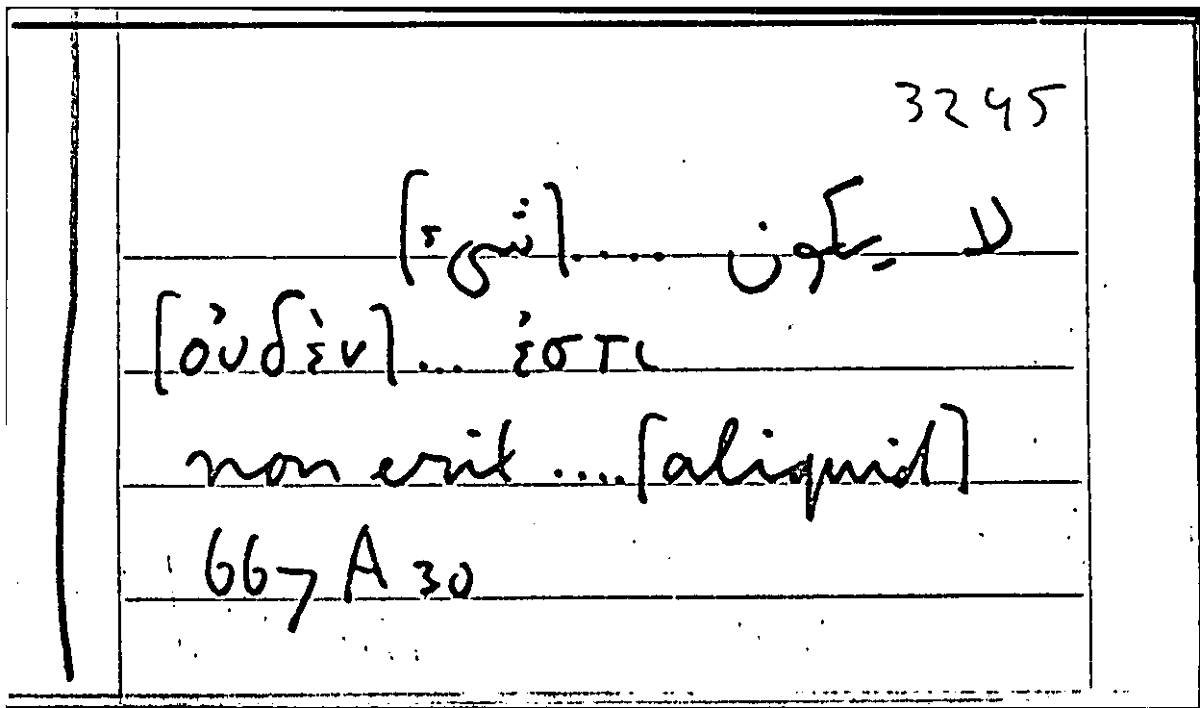 3245
لا يكون .... [شيء]
[οὐδὲν] ... ἐστι
non erit .... [aliquid]
667 A 30